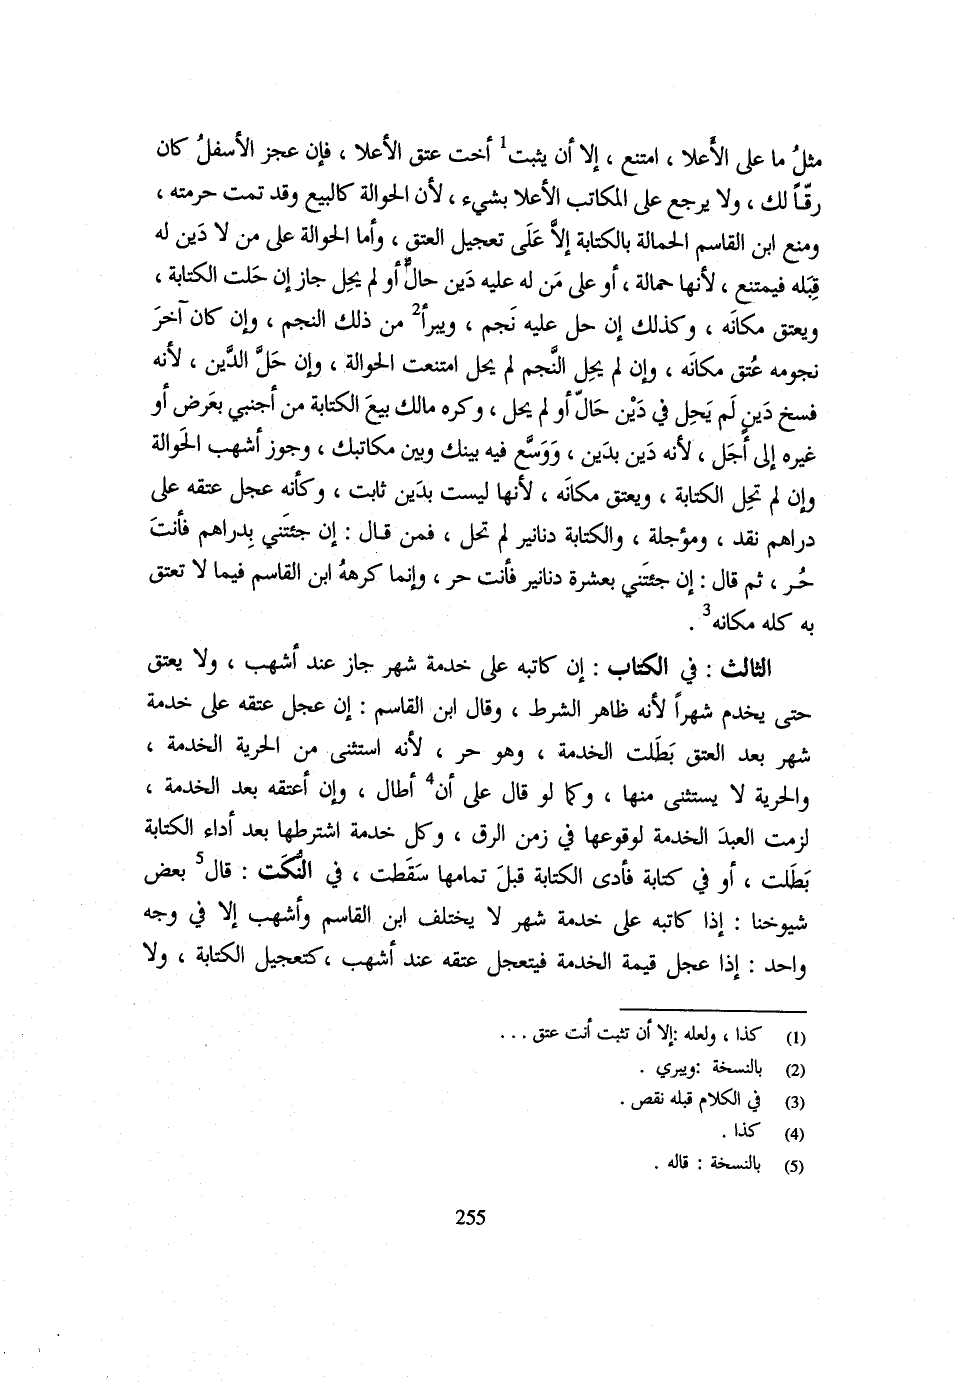 مثلُ ما على الأَعلا ، امتنع ، إلا أن يثبت1 أخت عتق الأعلا ، فإن عجز الأسفلُ كان
رقّاً لك ، ولا يرجع على المكاتب الأعلا بشيء ، لأن الحوالة كالبيع وقد تمت حرمته ،
ومنع ابن القاسم الحمالة بالكتابة إلاَّ عَلَى تعجيل العتق ، وأما الحوالة على من لا دَين له
قِبَله فيمتنع ، لأنها حمالة ، أو على مَن له عليه دَين حالٌّ أو لم يحِل جاز إن حَلت الكتابة ،
ويعتق مكانَه ، وكذلك إن حل عليه نَجم ، ويبرأ2 من ذلك النجم ، وإن كان آخرَ
نجومه عُتق مكانَه ، وإن لم يحِل النَّجم لم يحل امتنعت الحوالة ، وإن حَلَّ الدَّين ، لأنه
فسخ دَينٍ لَم يَحِل في دَيْن حَالّ أو لم يحل ، وكره مالك بيعَ الكتابة من أجنبي بعَرض أو
غيره إلى أَجَل ، لأنه دَين بدَين ، وَوَسَّع فيه بينك وبين مكاتبك ، وجوز أشهب الحَوالة
وإن لم تحِل الكتابة ، ويعتق مكانَه ، لأنها ليست بدَين ثابت ، وكأنه عجل عتقه على
دراهم نقد ، ومؤجلة ، والكتابة دنانير لم تحل ، فمن قال : إن جئتَني بِدراهم فأنتَ
حُر ، ثم قال : إن جئتَني بعشرة دنانير فأنت حر ، وإنما كرههُ ابن القاسم فيما لا تعتق
به كله مكانه3 .
الثالث : في الكتاب : إن كاتبه على خدمة شهر جاز عند أشهب ، ولا يعتق
حتى يخدم شهراً لأنه ظاهر الشرط ، وقال ابن القاسم : إن عجل عتقه على خدمة
شهر بعد العتق بَطَلت الخدمة ، وهو حر ، لأنه استثنى من الحرية الخدمة ،
والحرية لا يستثنى منها ، وكما لو قال على أن4 أطال ، وإن أعتقه بعد الخدمة ،
لزمت العبدَ الخدمة لوقوعها في زمن الرق ، وكل خدمة اشترطها بعد أداء الكتابة
بَطَلت ، أو في كتابة فأدى الكتابة قبلَ تمامها سَقَطت ، في النُّكَت : قال5 بعض
شيوخنا : إذا كاتبه على خدمة شهر لا يختلف ابن القاسم وأشهب إلا في وجه
واحد : إذا عجل قيمة الخدمة فيتعجل عتقه عند أشهب ،كتعجيل الكتابة ، ولا
(1) كذا ، ولعله :إلا أن تثبت أنت عتق . . .
(2) بالنسخة :ويبري .
(3) في الكلام قبله نقص .
(4) كذا .
(5) بالنسخة : قاله .
255